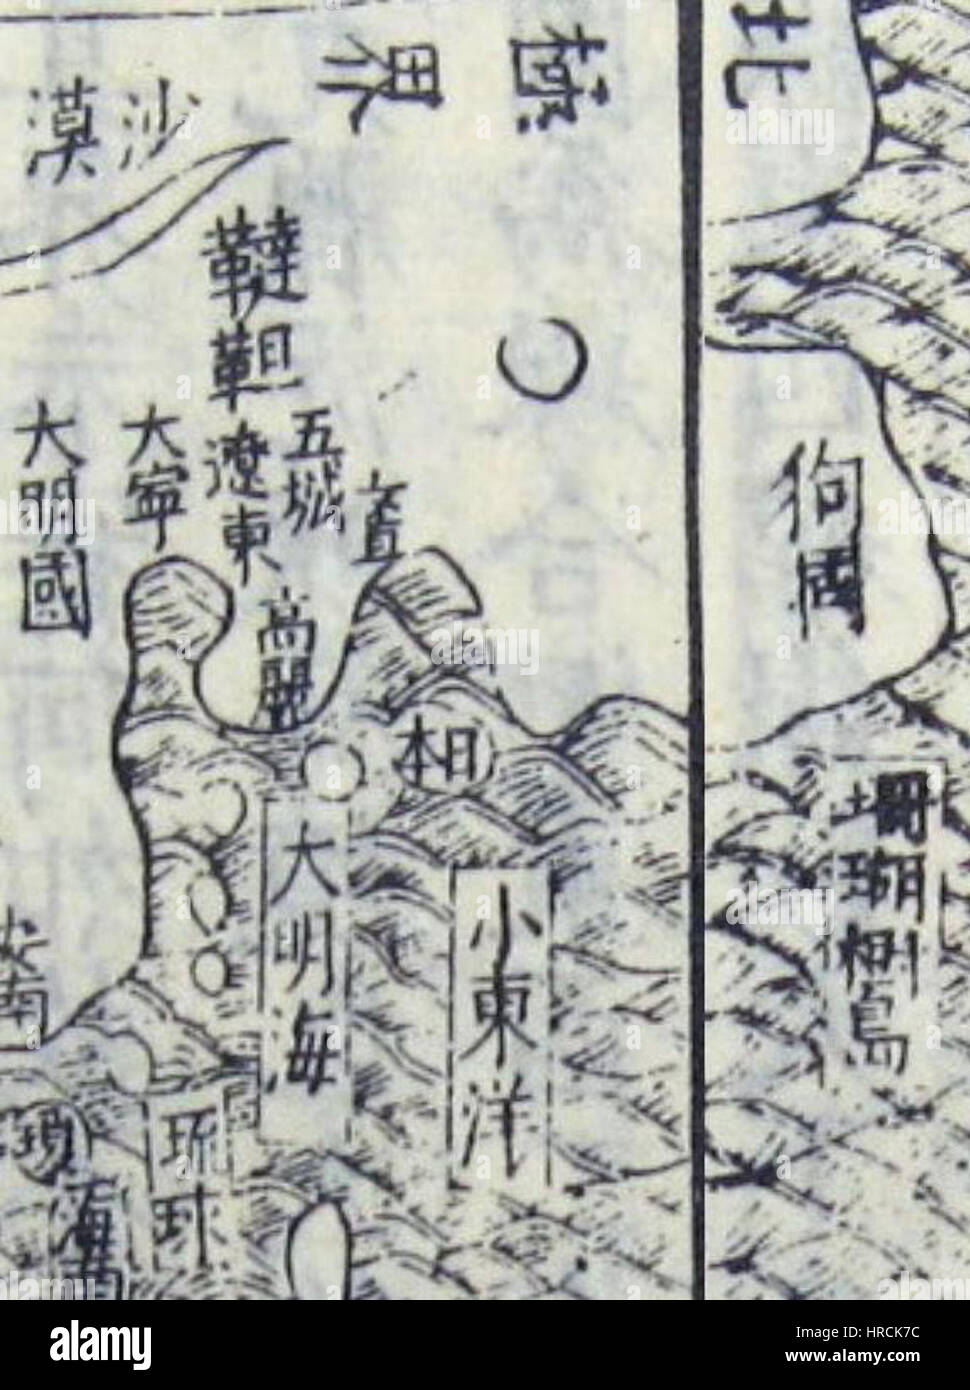 北
極
界
沙漠
韃靼
五
遼東
大寧
大明國
高麗
日本
狗國
珊瑚樹島
小東洋
大明海
安南
琉球
alamy
Image ID: HRCK7C
www.alamy.com